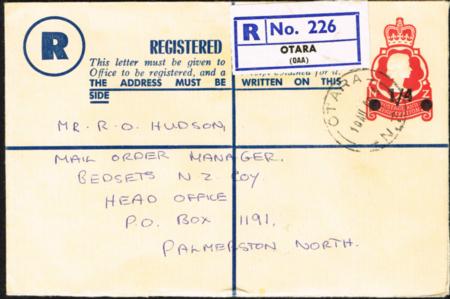 R
REGISTERED
This letter must be given to
Office to be registered, and a
THE ADDRESS MUST BE WRITTEN ON THIS
SIDE
R No. 226
OTARA
(OAA)
N Z
1/4
OTARA
N.Z.
MR. R. O. HUDSON,
MAIL ORDER MANAGER.
BEDSETS N.Z. COY.
HEAD OFFICE
P.O. BOX 1191.
PALMERSTON NORTH.